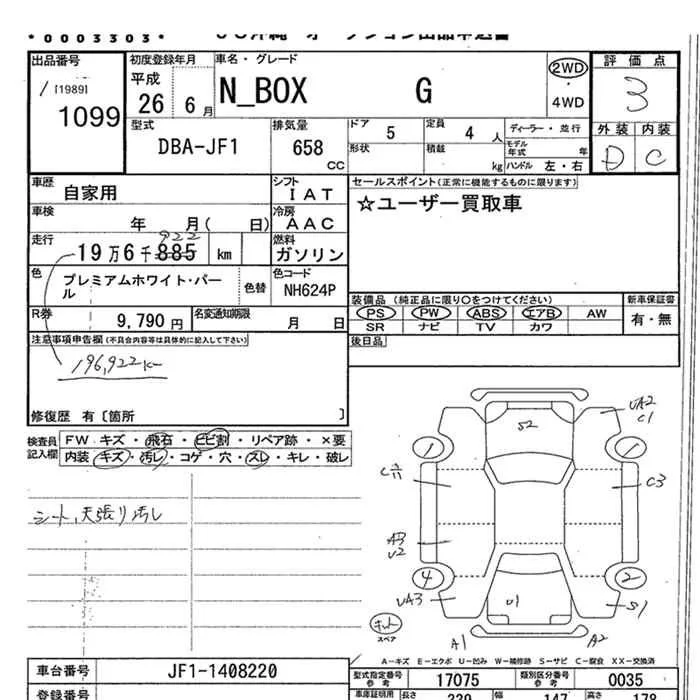 *0003303*
出品番号
1 / [1989]
1099
初度登録年月
平成
26 6月
車名・グレード
N_BOX G
2WD
・
4WD
評価点
3
外装 内装
D C
型式
DBA-JF1
排気量
658
CC
ドア 5
形状
定員 4 人
積載 kg
ディーラー・並行
モデル年式 年
ハンドル 左・右
車歴 自家用
シフト
IAT
車検 年 月( 日)
冷房
AAC
走行
19万6千885 km
922
燃料
ガソリン
色 プレミアムホワイト・パール
色替
色コード
NH624P
R券
9,790 円
名変通知期限
月 日
セールスポイント(正常に機能するものに限ります)
☆ユーザー買取車
装備品 (純正品に限り○をつけてください)
PS PW ABS エアB AW
SR ナビ TV カワ
新車保証書
有・無
後日品
注意事項申告欄(不具合内容等は具体的に記入して下さい)
196,922km
修復歴 有〔箇所 〕
検査員
記入欄
FW キズ・飛石・ヒビ割・リペア跡・×要
内装 キズ・汚レ・コゲ・穴・スレ・キレ・破レ
シート、天張り汚レ
S2
UA2
C1
1
1
C
C3
A3
U2
4
2
UA3
U1
S1
キット
スペア
A1
A2
A−キズ E−エクボ U−凹み W−補修跡 S−サビ C−腐食 XX−交換済
車台番号
JF1-1408220
登録番号
型式指定番号
参考
17075
類別区分番号
参考
0035
車庫証明用
長さ
339
幅
147
高さ
178